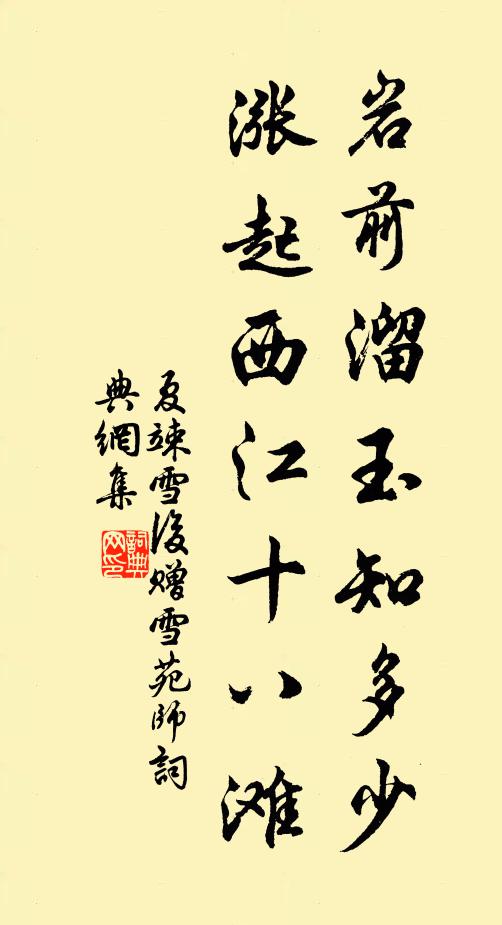 岩前溜玉知多少
涨起西江十八滩
夏竦雪後赠雪苑師詞
典網集
詞典网印